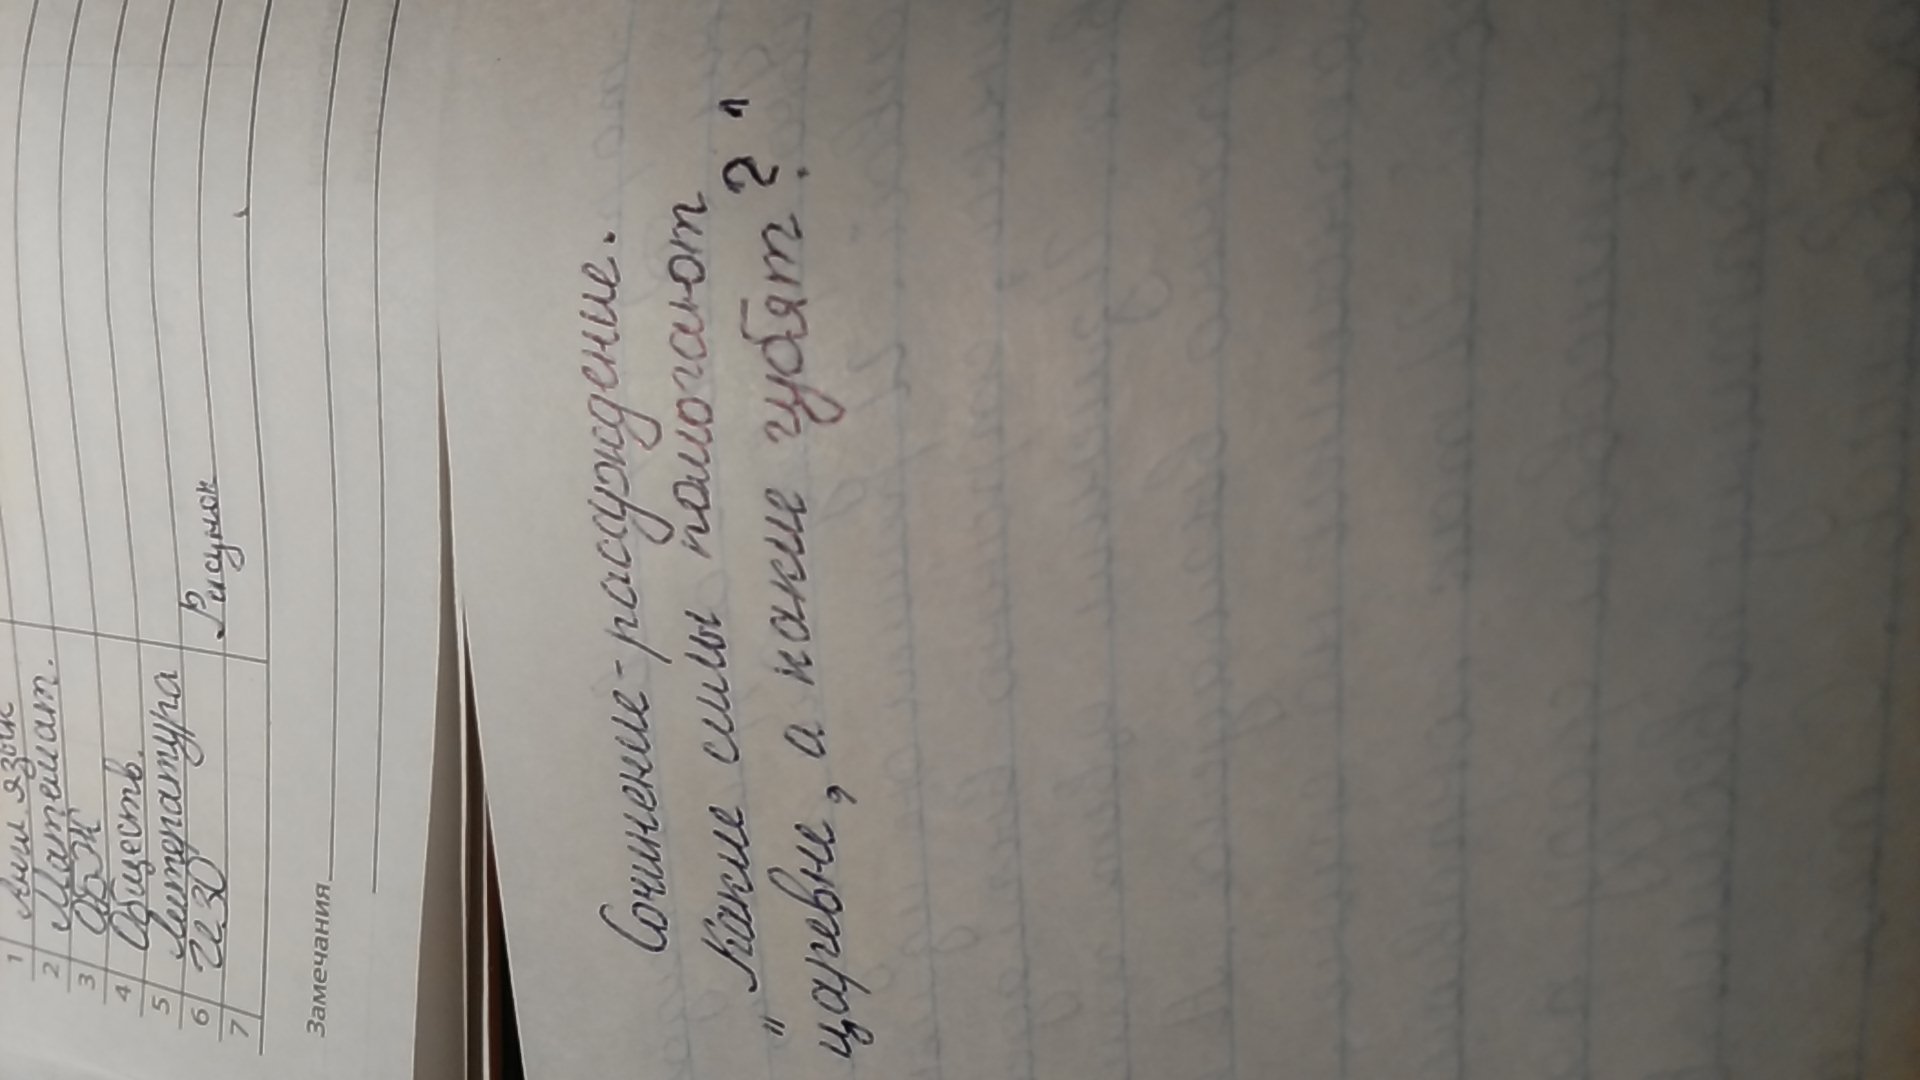 1 Англ. язык
2 Математ.
3 ОБЖ
4 Обществ.
5 Литература
6 ИЗО Рисунок
7
Замечания
Сочинение-рассуждение.
"Какие силы помогают
царевне, а какие губят?"